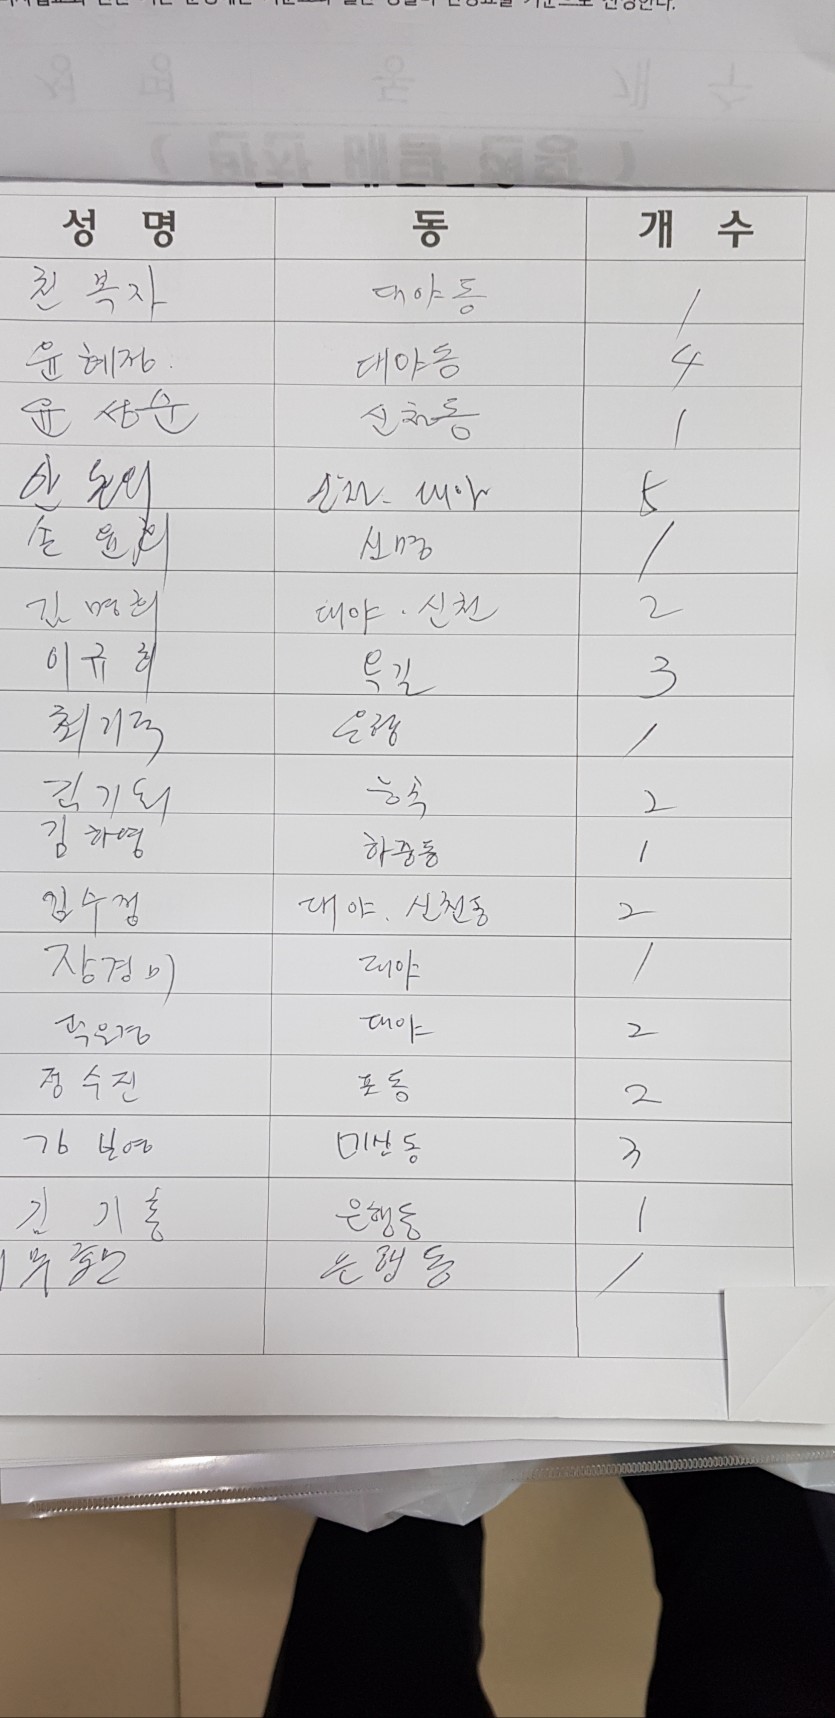 성 명 동 개 수
최복자 대야동 1
윤혜정 대야동 4
윤상순 신천동 1
신천. 대야 5
손윤희 신명 1
김명희 대야. 신천 2
이규희 목길 3
최기옥 은행 1
2
김하영 하중동 1
김수정 대야. 신천동 2
장경미 대야 1
곽은경 대야 2
정수진 포동 2
강보영 미산동 3
김기홍 은행동 1
은행동 1